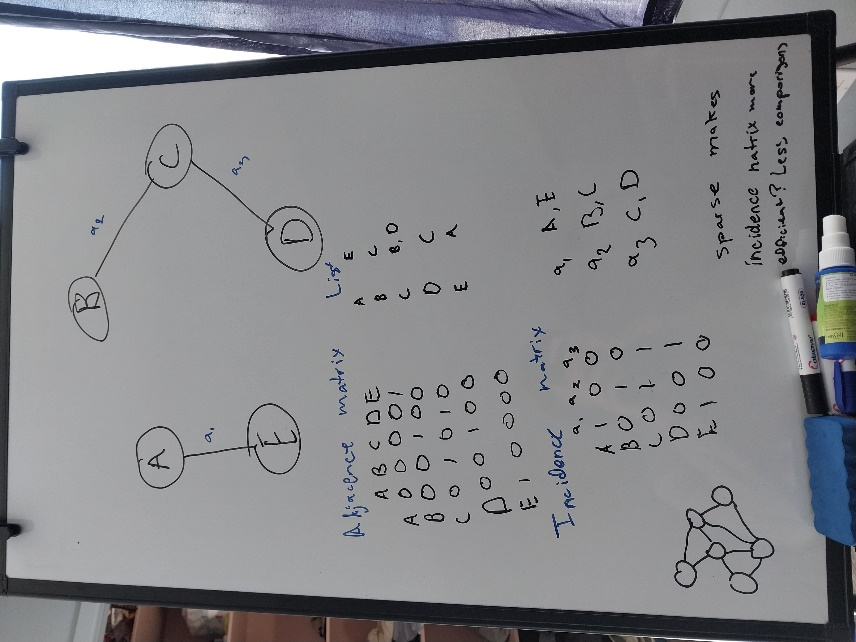 B
a2
A
C
a1
a3
E
D
Adjacence matrix
A B C D E
A 0 0 0 0 1
B 0 0 1 0 0
C 0 1 0 1 0
D 0 0 1 0 0
E 1 0 0 0 0
List
A E
B C
C B,D
D C
E A
Incidence matrix
a1 a2 a3
A 1 0 0
B 0 1 0
C 0 1 1
D 0 0 1
E 1 0 0
a1 A,E
a2 B,C
a3 C,D
sparse makes
incidence matrix more
efficient? Less comparisons